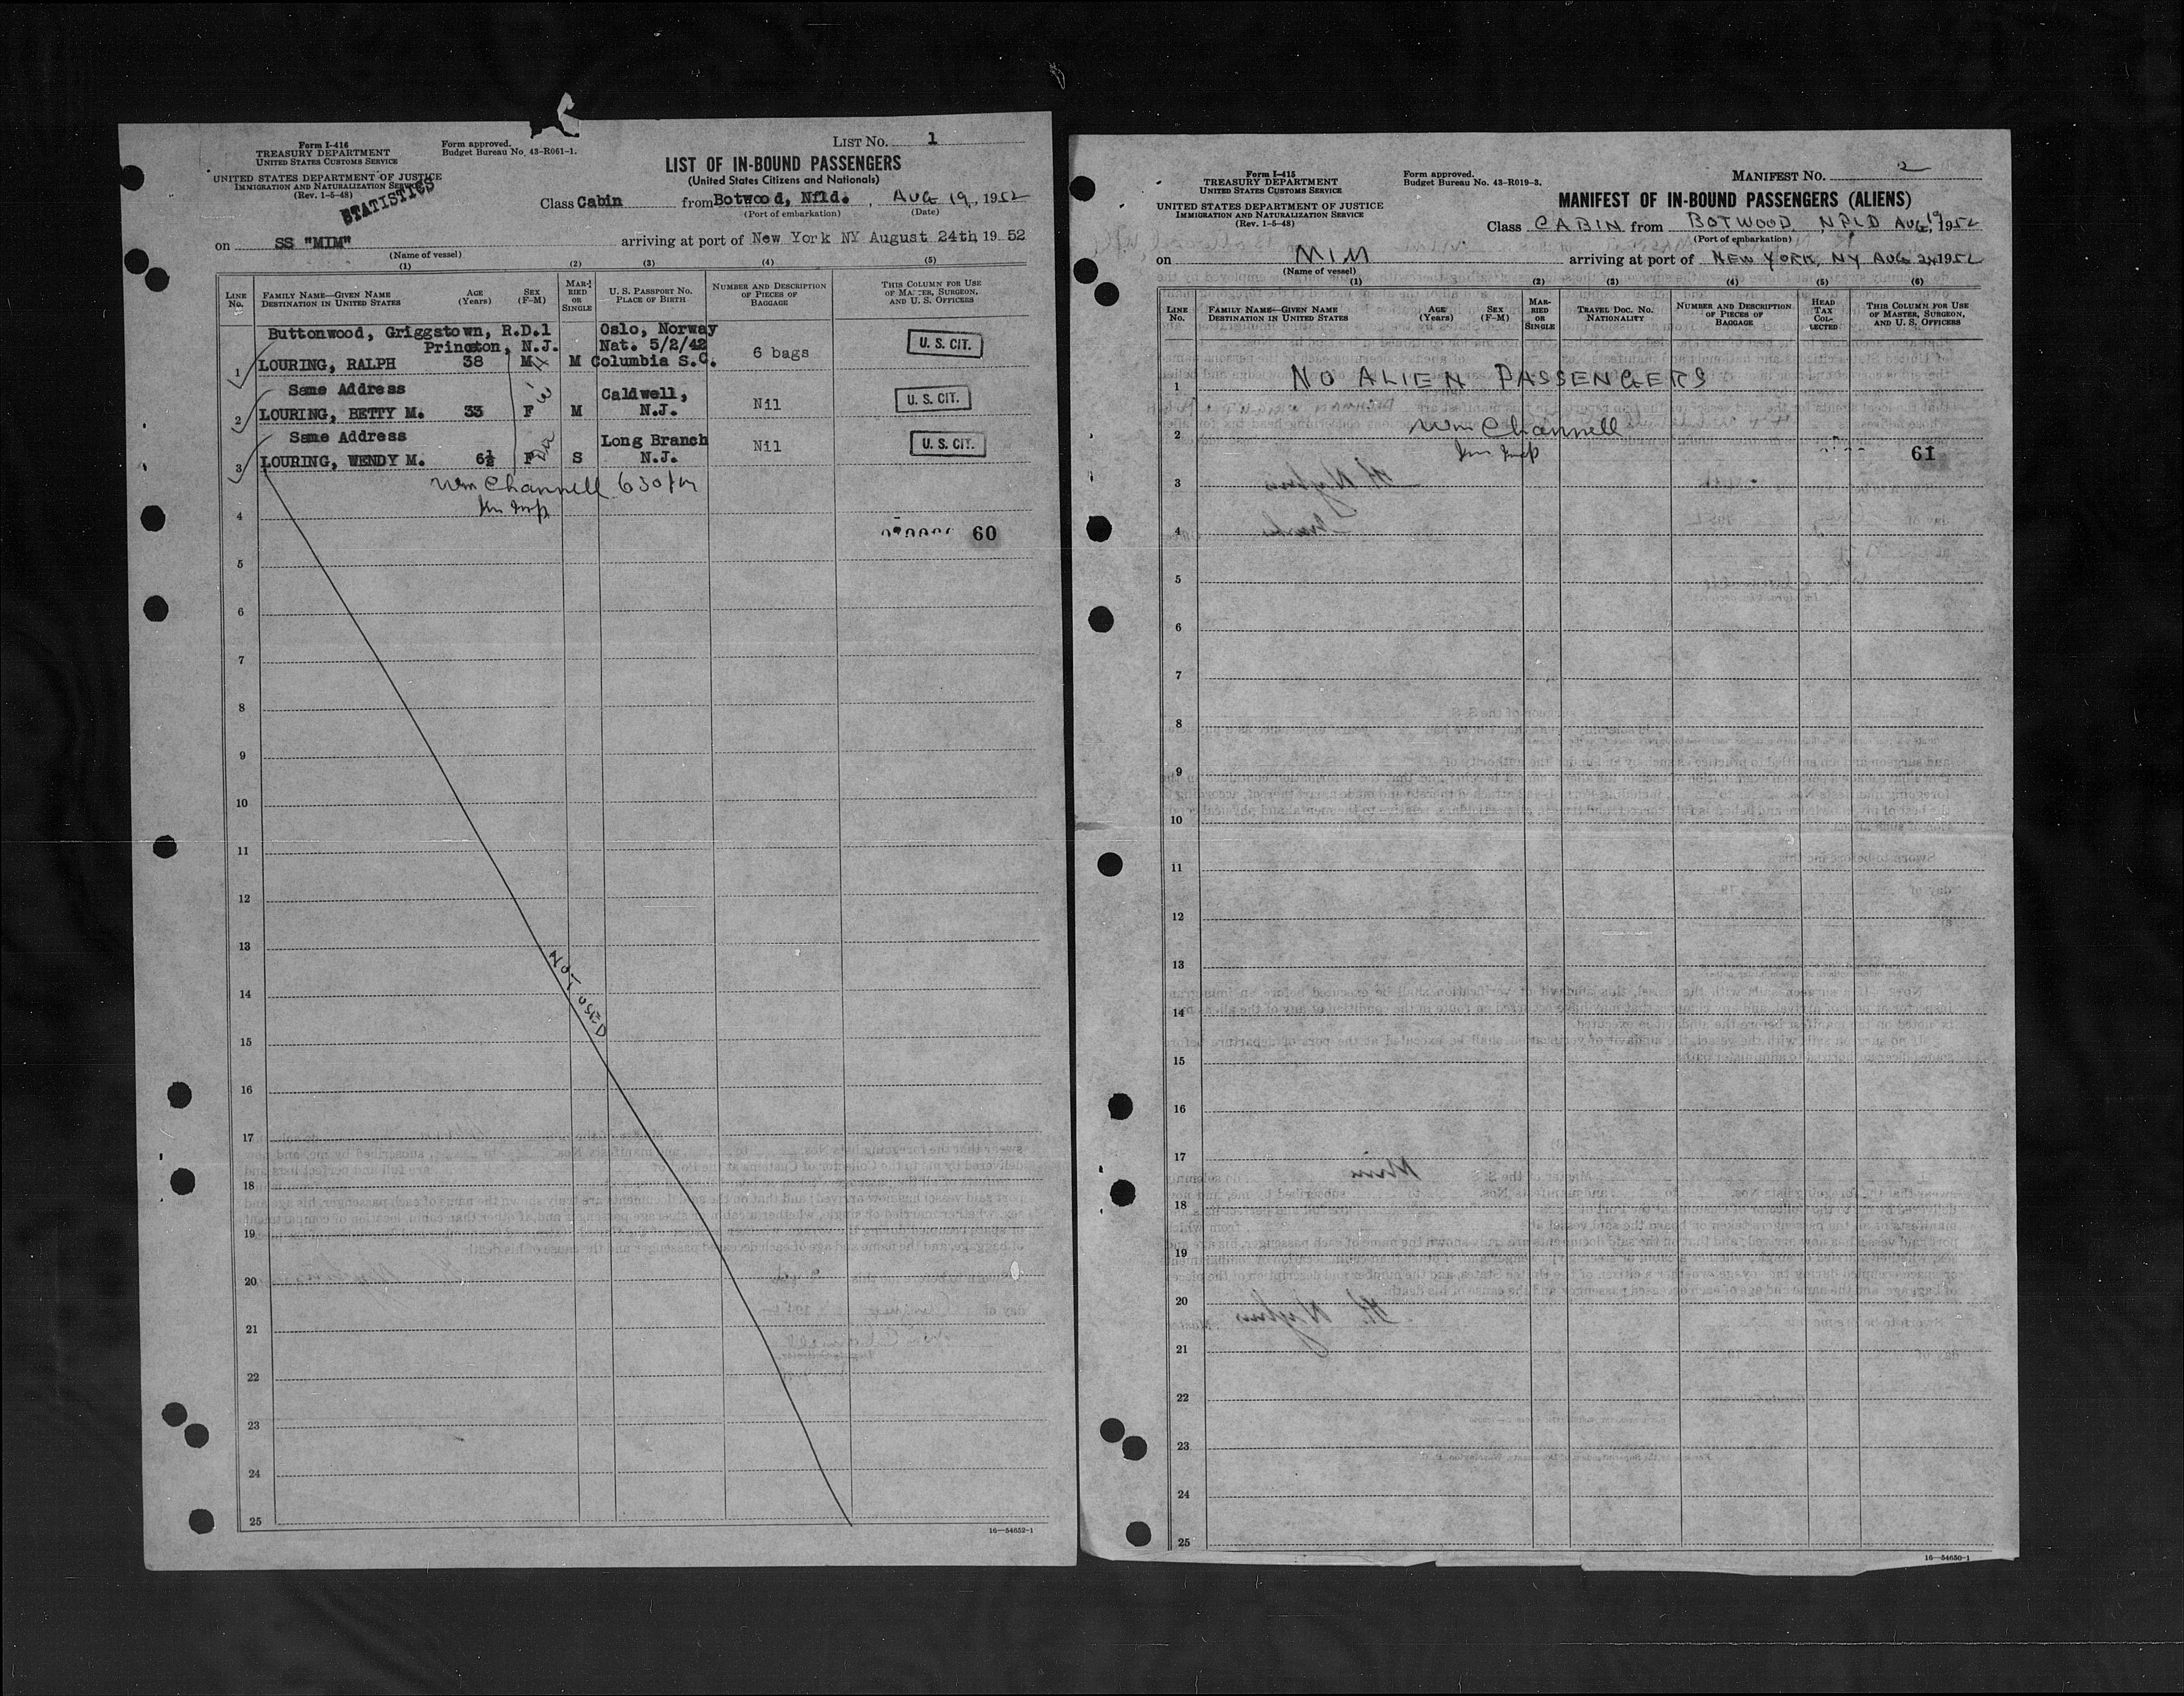 Form I-416
TREASURY DEPARTMENT
UNITED STATES CUSTOMS SERVICE
UNITED STATES DEPARTMENT OF JUSTICE
IMMIGRATION AND NATURALIZATION SERVICE
(Rev. 1-5-48)
STATISTICS
Form approved.
Budget Bureau No. 43-R061-1.
LIST NO. 1
LIST OF IN-BOUND PASSENGERS
(United States Citizens and Nationals)
Class Cabin from Botwood, Nfld. , AUG 19, 1952
(Port of embarkation) (Date)
on SS "MIM" arriving at port of New York NY August 24th, 19 52
(Name of vessel)
(1) (2) (3) (4) (5)
LINE No. FAMILY NAME—GIVEN NAME DESTINATION IN UNITED STATES AGE (Years) SEX (F-M) MARRIED OR SINGLE U. S. PASSPORT NO. PLACE OF BIRTH NUMBER AND DESCRIPTION OF PIECES OF BAGGAGE THIS COLUMN FOR USE OF MASTER, SURGEON, AND U. S. OFFICERS
Buttonwood, Griggstown, R.D.1 Oslo, Norway
Princeton, N.J. Nat. 5/2/42
1 LOURING, RALPH 38 M M Columbia S.C. 6 bags U. S. CIT.
Same Address Caldwell,
2 LOURING, BETTY M. 33 F M N.J. Nil U. S. CIT.
Same Address Long Branch
3 LOURING, WENDY M. 6½ F S N.J. Nil U. S. CIT.
Wm Channell 630pm
Imm Insp
4
60
5
6
7
8
9
10
11
12
13
NOT USED
14
15
16
17
18
19
20
21
22
23
24
25
16—54652-1
Form I-415
TREASURY DEPARTMENT
UNITED STATES CUSTOMS SERVICE
UNITED STATES DEPARTMENT OF JUSTICE
IMMIGRATION AND NATURALIZATION SERVICE
(Rev. 1-5-48)
Form approved.
Budget Bureau No. 43-R019-3.
MANIFEST NO. 2
MANIFEST OF IN-BOUND PASSENGERS (ALIENS)
Class CABIN from BOTWOOD, NFLD AUG, 19 1952
(Port of embarkation)
on MIM arriving at port of NEW YORK, NY AUG 24 1952
(Name of vessel)
(1) (2) (3) (4) (5) (6)
LINE No. FAMILY NAME—GIVEN NAME DESTINATION IN UNITED STATES AGE (Years) SEX (F-M) MARRIED OR SINGLE TRAVEL DOC. NO. NATIONALITY NUMBER AND DESCRIPTION OF PIECES OF BAGGAGE HEAD TAX COLLECTED THIS COLUMN FOR USE OF MASTER, SURGEON, AND U. S. OFFICERS
1 NO ALIEN PASSENGERS
2 Wm Channell
Imm Insp
61
3
4
5
6
7
8
9
10
11
12
13
14
15
16
17
18
19
20
21
22
23
24
25
16—54650-1